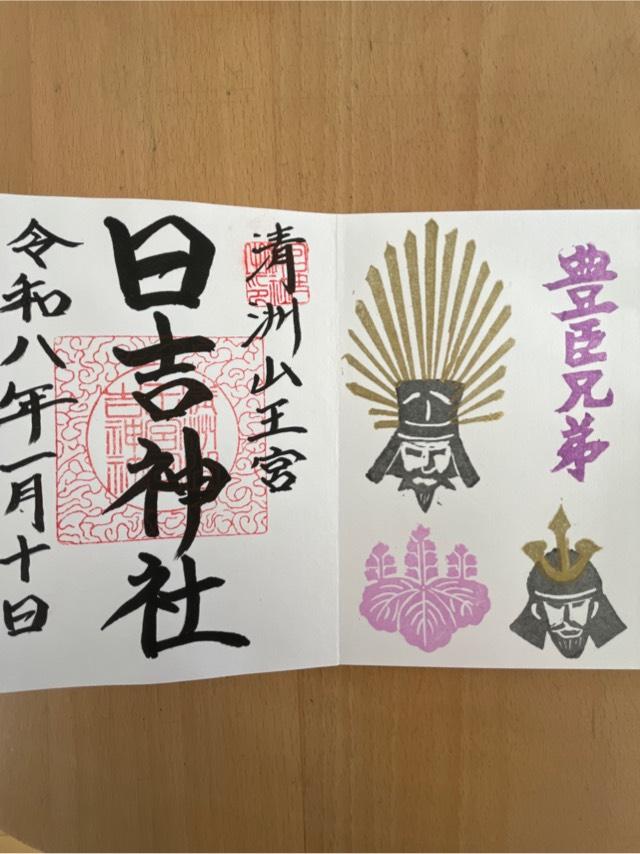 豊臣兄弟
清洲山王宮
日吉神社
令和八年一月十日